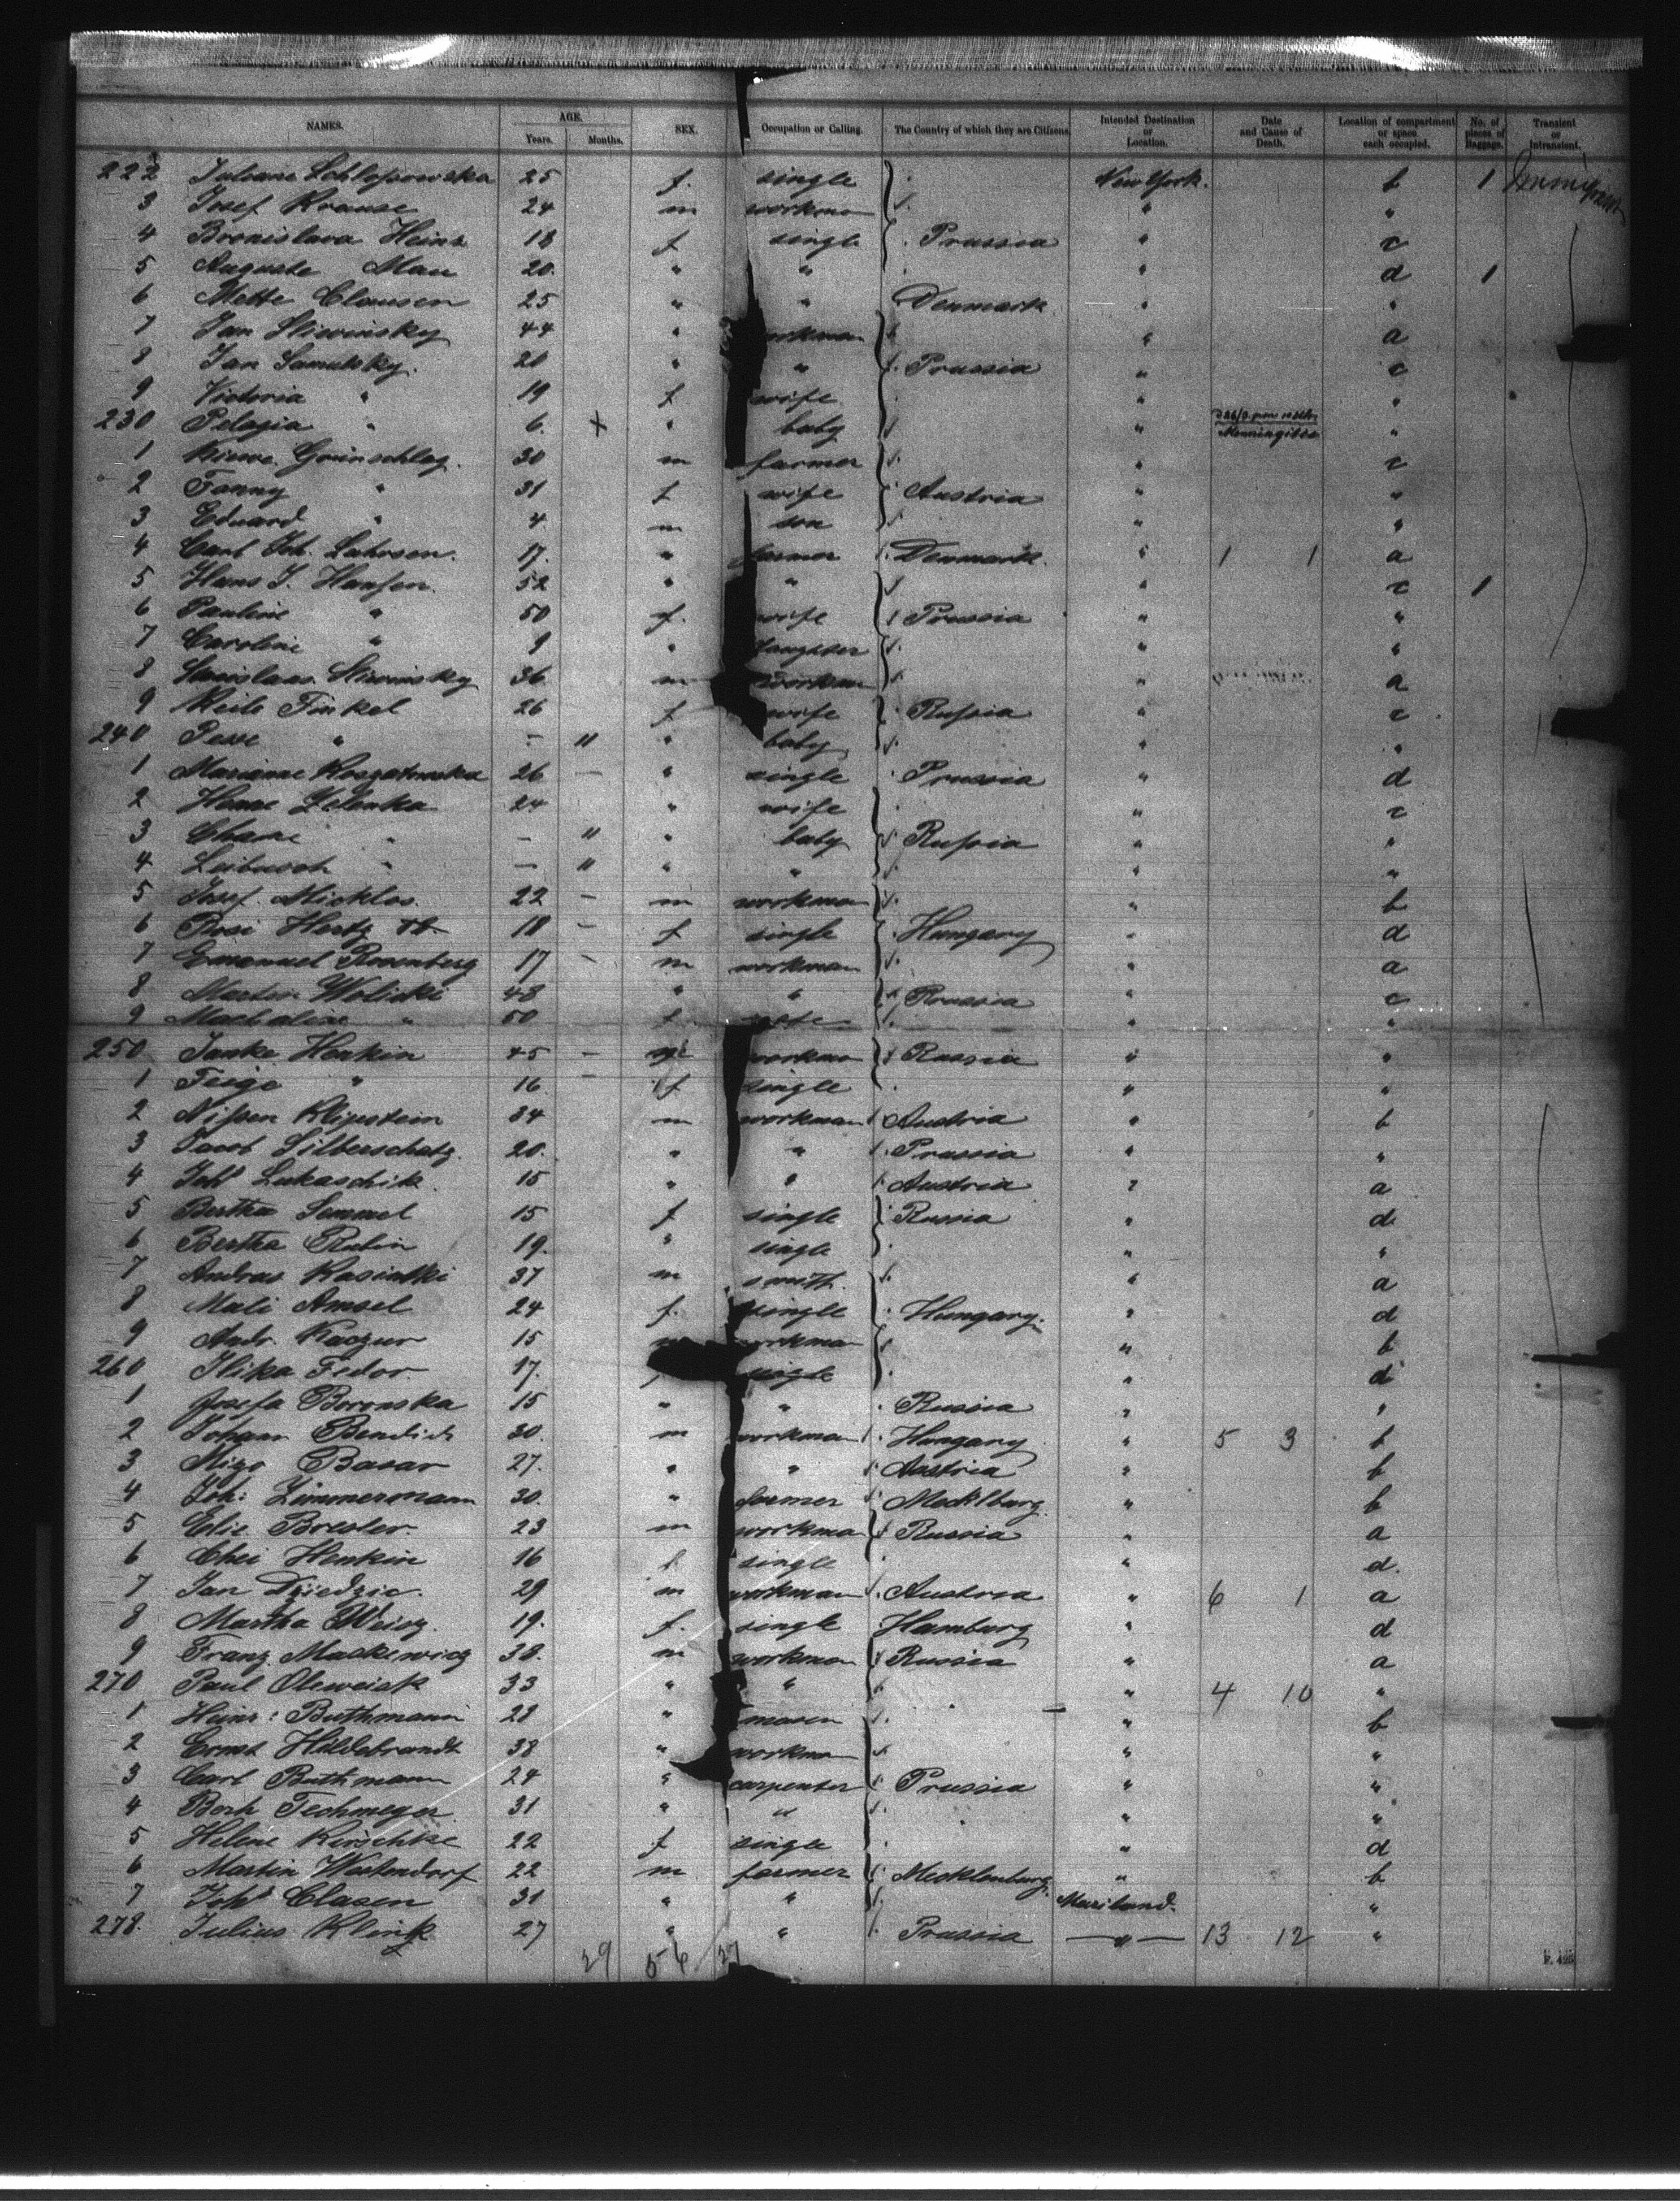 NAMES. AGE. Years. Months. SEX. Occupation or Calling. The Country of which they are Citizens. Intended Destination or Location. Date and Cause of Death. Location of compartment or space each occupied. No. of pieces of Baggage. Transient or Intransient.
222 Juliane Schlopowska 25 f. single New York. b 1
3 Josef Krause 24 m workman " "
4 Bronislava Heinz 18 f single Prussia " c
5 Auguste Mau 20. " " " d 1
6 Mette Clausen 25 " " Denmark " "
7 Jan Sliwinsky 44 " workman " a
8 Jan Samulsky. 20 " " Prussia " c
9 Victoria " 19 f wife " "
230 Pelagia " 6. x " baby " Menningitis "
1 Grünschlag. 30 m farmer " c
2 Fanny " 31 f wife Austria " "
3 Eduard " 4 m son " "
4 Carl Joh. Lahrsen. 17. " farmer Denmark. " 1 1 a
5 Hans J. Hansen. 52 " " " c 1
6 Pauline " 50 f. wife Prussia " "
7 Caroline " 9 " daughter " "
8 Stanislaus Sliwinsky 36 m workman " a
9 Finkel 26 f wife Russia " c
240 Pesse " - 11 " baby " "
1 Marianne 26 - " single Prussia " d
2 Zelenka 24 " wife " c
3 Chane " - 11 " baby Russia " "
4 Leibusch " - 11 " " " "
5 Josef Micklos. 22 - m workman " b
6 Rosi Hertz 18 - f single Hungary " d
7 Emanuel Rosenberg 17 - m workman " a
8 Martin Wolicki 48 " " Prussia " c
9 " 50 f. wife " "
250 Janke Henkin 45 - workman Russia " "
1 Feige " 16 - f single " "
2 Nissen Klipstein 34 m workman Austria " b
3 Jacob Silberschatz. 20. " " Prussia " "
4 Joh Lukaschik. 15 " " Austria " a
5 Bertha Semmel 15 f single Russia " d
6 Bertha Rubin 19. " single " "
7 Andras 37 m smith. " a
8 Mali Amsel 24 f. single Hungary. " d
9 Andr. Kaczur 15 m workman " b
260 Ilika Fedor. 17. single " d
1 Josefa Boronska 15 " " Russia " "
2 Johann 30. m workman Hungary " 5 3 b
3 Basar 27. " " Austria " b
4 Joh: Zimmermann 30. " farmer Mecklburg. " b
5 Elie Bresler. 23 m workman Russia " a
6 Chei Henkin 16 f. single " d.
7 Jan Dziedzic. 29 m workman Austria " 6 1 a
8 Martha 19. f. single Hamburg " d
9 Franz Maskewicz 38. m workman Russia " a
270 Paul Olewciak 33 " " " 4 10 "
1 Heinr: Buthmann 28 " mason " b
2 Ernst Hildebrandt 38 " workman " "
3 Carl Buthmann 24 " carpenter Prussia " "
4 Techmeyer 31 " " " "
5 Helene Kirschke 22 f single " d
6 Martin 22 m farmer Mecklenburg. " b
7 Joh Clasen 31 " " Mariland. "
278. Julius Klink 27 " " Prussia —"— 13 12 "
29 56 27